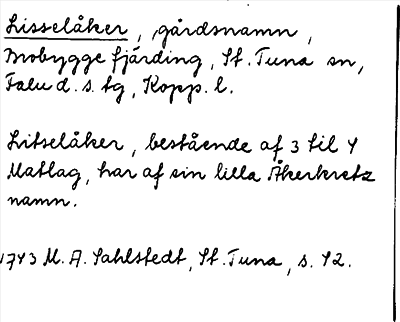 Lisselåker, gårdsnamn,
Brobygge fjärding, St. Tuna sn,
Falu d. s. tg, Kopp. l.
Litselåker, bestående af 3 til 4
Matlag, har af sin lilla Åkerkretz
namn.
1743 M. A. Sahlstedt, St. Tuna, s. 42.